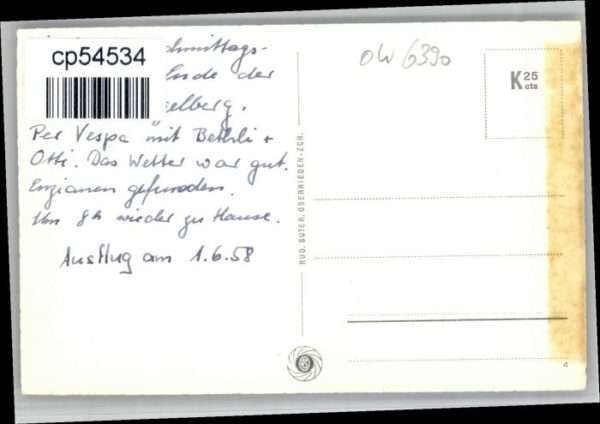 cp54534
mittags-
der
elberg.
Per Vespa mit Bethli +
Otti. Das Wetter war gut.
Enzianen gefunden.
Um 8h wieder zu Hause.
Ausflug am 1.6.58
OW 6390
K 25
cts
RUD. SUTER, OBERRIEDEN-ZCH.